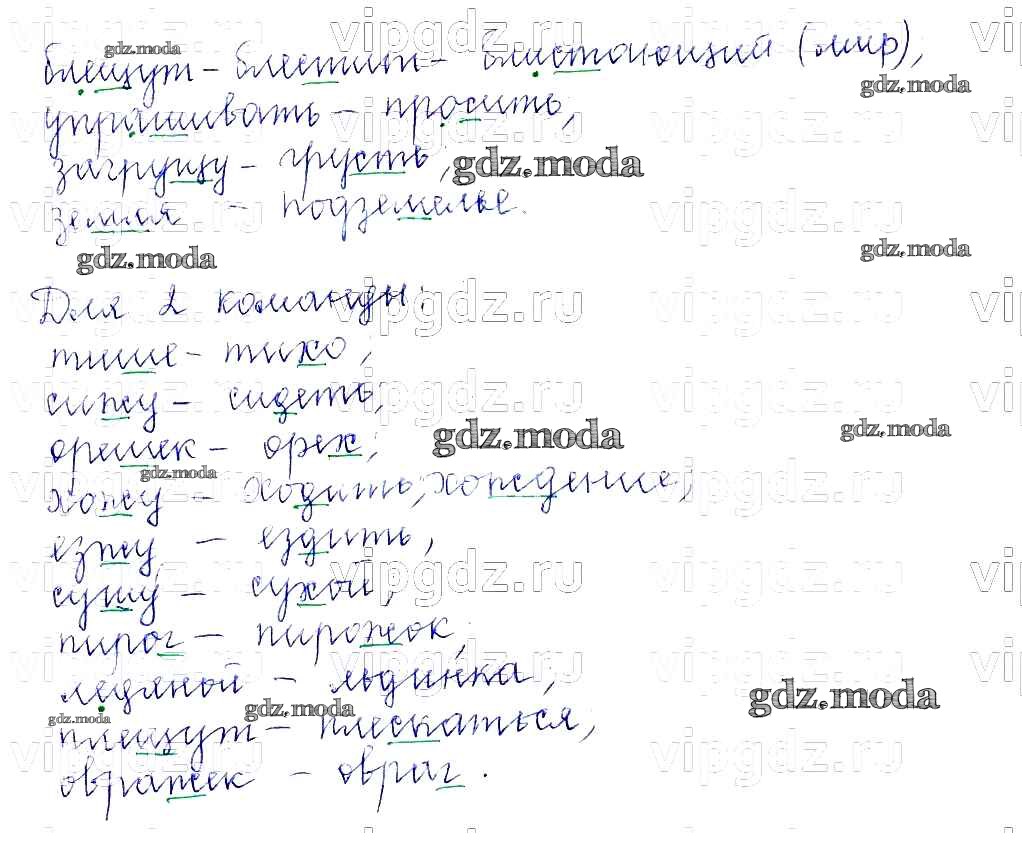 блещут – блестит – блистающий (мир),
упрашивать – просить,
загрущу – грусть,
земля – подземелье.
Для 2 команды:
тише – тихо,
сижу – сидеть,
орешек – орех,
хожу – ходить, хождение,
езжу – ездить,
сушу – сухой,
пирог – пирожок,
ледяной – льдинка,
плещут – плескаться,
овражек – овраг.
gdz.moda
vipgdz.ru